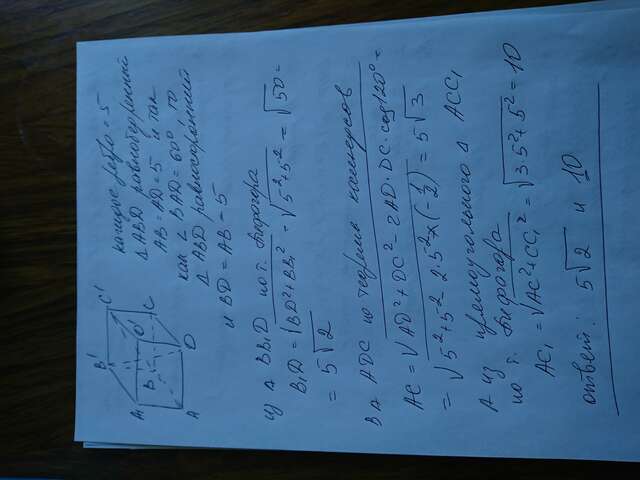 B' C'
A₁ O'
B C
A D
каждое ребро = 5
Δ ABD равнобедренный
AB = AD = 5 и так
как ∠ BAD = 60° то
Δ ABD равносторонний
и BD = AB = 5
из Δ BB₁D по т. Пифагора
B₁D = √BD² + BB₁² = √5² + 5² = √50 =
= 5√2
В Δ ADC по теореме косинусов
AC = √AD² + DC² - 2AD · DC · cos120° =
= √5² + 5² - 2·5² × (-1/2) = 5√3
А из прямоугольного Δ ACC₁
по т. Пифагора
AC₁ = √AC² + CC₁² = √3·5² + 5² = 10
ответ: 5√2 и 10